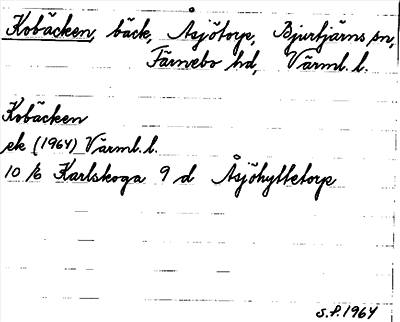 Kobäcken, bäck, Åsjötorp, Bjurtjärns sn,
Färnebo hd, Värml. l.
Kobäcken
ek (1964) Värml. l.
10 /6 Karlskoga 9 d Åsjöhyttetorp
S.F. 1964